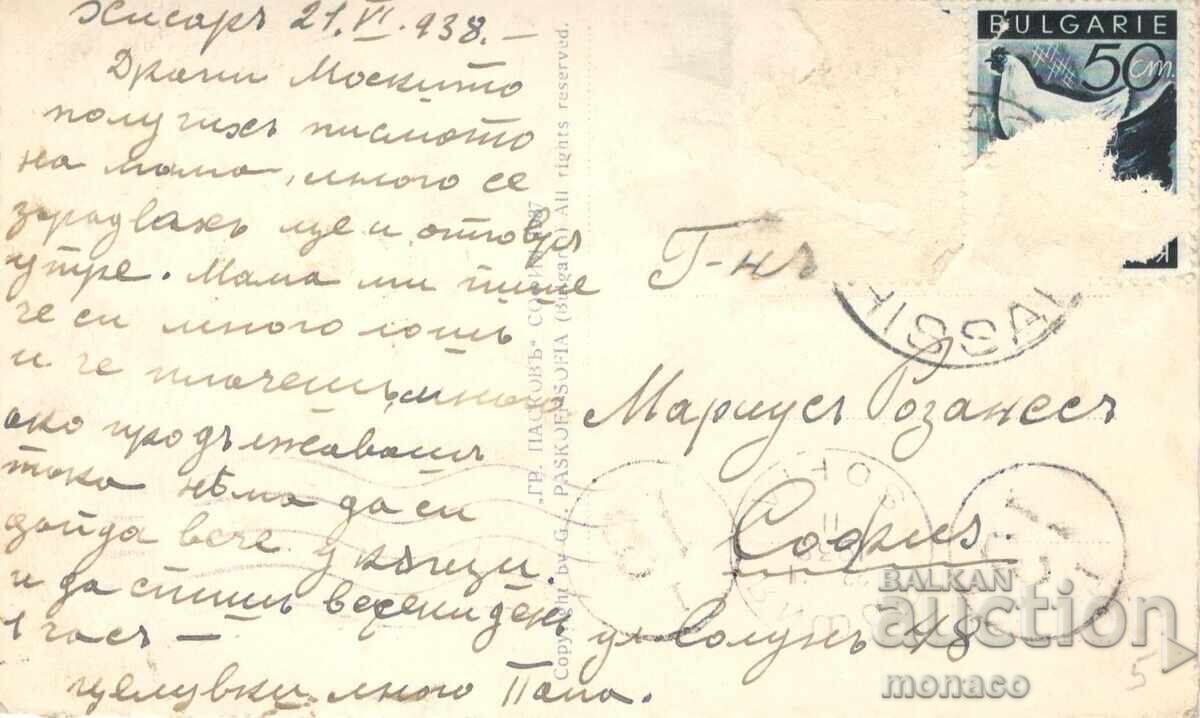 Хисаръ 21.VI.938.-
Драги Москито
получихъ писмото
на мама, много се
зарадвахъ ще и отговоря
утре. Мама ми пише
че си много лошъ
и че плачешъ, много
ако продължавашъ
така нѣма да си
дойда вече у кѫщи.
и да спишъ всеки день
1 часъ —
целувки много Папа.
"ГР. ПАСКОВЪ" СОФИЯ
Copyright by G. PASKOFF SOFIA (Bulgaria) All rights reserved.
BULGARIE
50 cm.
HISSAR
Г-нъ
Мариусъ Розанесъ
София.
ул Солунъ 48
5
BALKAN
auction
monaco